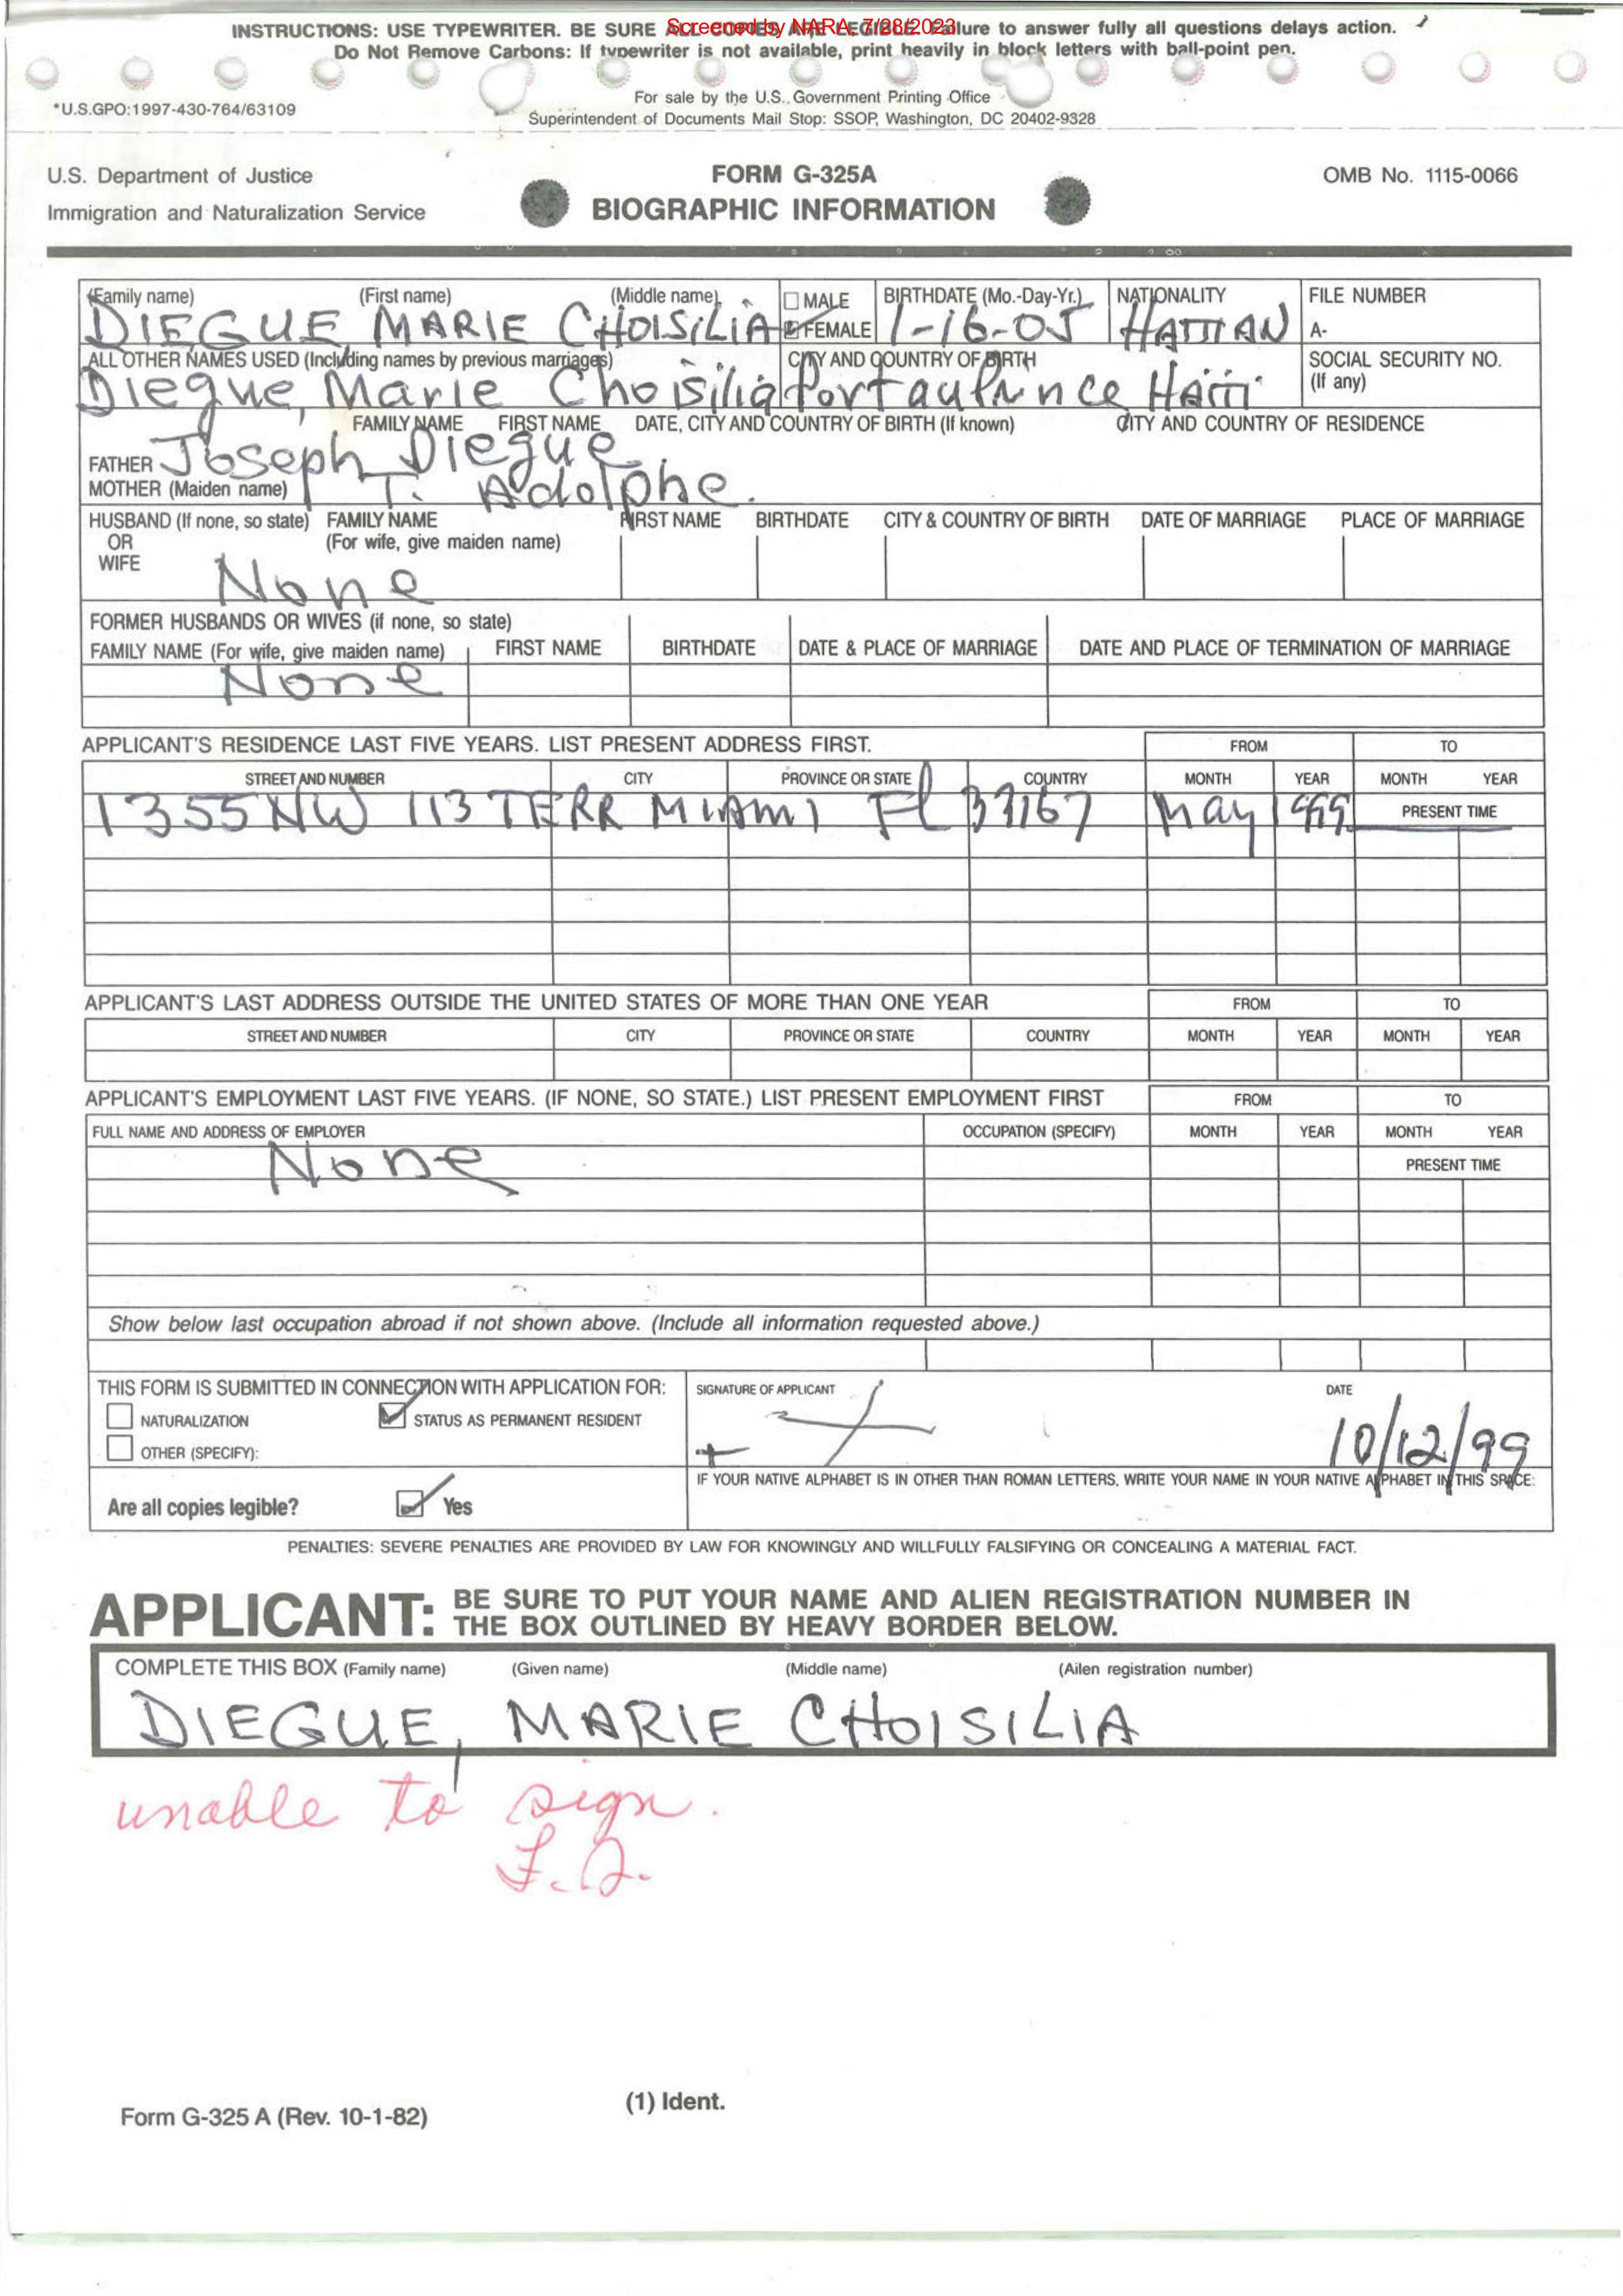 INSTRUCTIONS: USE TYPEWRITER. BE SURE ALL COPIES ARE LEGIBLE. Failure to answer fully all questions delays action.
Screened by NARA, 7/28/2023
Do Not Remove Carbons: If typewriter is not available, print heavily in block letters with ball-point pen.
*U.S.GPO:1997-430-764/63109
For sale by the U.S. Government Printing Office
Superintendent of Documents Mail Stop: SSOP, Washington, DC 20402-9328
U.S. Department of Justice
Immigration and Naturalization Service
FORM G-325A
BIOGRAPHIC INFORMATION
OMB No. 1115-0066
(Family name) (First name) (Middle name) MALE BIRTHDATE (Mo.-Day-Yr.) NATIONALITY FILE NUMBER
DIEGUE MARIE CHOISILIA FEMALE 1-16-05 HAITIAN A-
ALL OTHER NAMES USED (Including names by previous marriages) CITY AND COUNTRY OF BIRTH SOCIAL SECURITY NO.
(If any)
Diegue, Marie Choisilia Port au Prince Haiti
FAMILY NAME FIRST NAME DATE, CITY AND COUNTRY OF BIRTH (If known) CITY AND COUNTRY OF RESIDENCE
FATHER Joseph Diegue
MOTHER (Maiden name) T. Adolphe.
HUSBAND (If none, so state) FAMILY NAME FIRST NAME BIRTHDATE CITY & COUNTRY OF BIRTH DATE OF MARRIAGE PLACE OF MARRIAGE
OR (For wife, give maiden name)
WIFE
None
FORMER HUSBANDS OR WIVES (if none, so state)
FAMILY NAME (For wife, give maiden name) FIRST NAME BIRTHDATE DATE & PLACE OF MARRIAGE DATE AND PLACE OF TERMINATION OF MARRIAGE
None
APPLICANT'S RESIDENCE LAST FIVE YEARS. LIST PRESENT ADDRESS FIRST. FROM TO
STREET AND NUMBER CITY PROVINCE OR STATE COUNTRY MONTH YEAR MONTH YEAR
1355 NW 113 TERR MIAMI Fl 33167 May 1999 PRESENT TIME
APPLICANT'S LAST ADDRESS OUTSIDE THE UNITED STATES OF MORE THAN ONE YEAR FROM TO
STREET AND NUMBER CITY PROVINCE OR STATE COUNTRY MONTH YEAR MONTH YEAR
APPLICANT'S EMPLOYMENT LAST FIVE YEARS. (IF NONE, SO STATE.) LIST PRESENT EMPLOYMENT FIRST FROM TO
FULL NAME AND ADDRESS OF EMPLOYER OCCUPATION (SPECIFY) MONTH YEAR MONTH YEAR
None PRESENT TIME
Show below last occupation abroad if not shown above. (Include all information requested above.)
THIS FORM IS SUBMITTED IN CONNECTION WITH APPLICATION FOR: SIGNATURE OF APPLICANT DATE
NATURALIZATION STATUS AS PERMANENT RESIDENT
OTHER (SPECIFY): 10/12/99
IF YOUR NATIVE ALPHABET IS IN OTHER THAN ROMAN LETTERS, WRITE YOUR NAME IN YOUR NATIVE ALPHABET IN THIS SPACE:
Are all copies legible? Yes
PENALTIES: SEVERE PENALTIES ARE PROVIDED BY LAW FOR KNOWINGLY AND WILLFULLY FALSIFYING OR CONCEALING A MATERIAL FACT.
APPLICANT: BE SURE TO PUT YOUR NAME AND ALIEN REGISTRATION NUMBER IN
THE BOX OUTLINED BY HEAVY BORDER BELOW.
COMPLETE THIS BOX (Family name) (Given name) (Middle name) (Ailen registration number)
DIEGUE, MARIE CHOISILIA
unable to sign.
Form G-325 A (Rev. 10-1-82)
(1) Ident.